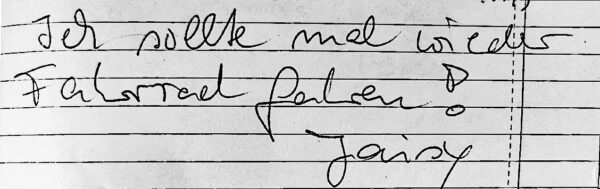 Ich sollte mal wieder
Fahrrad fahren!